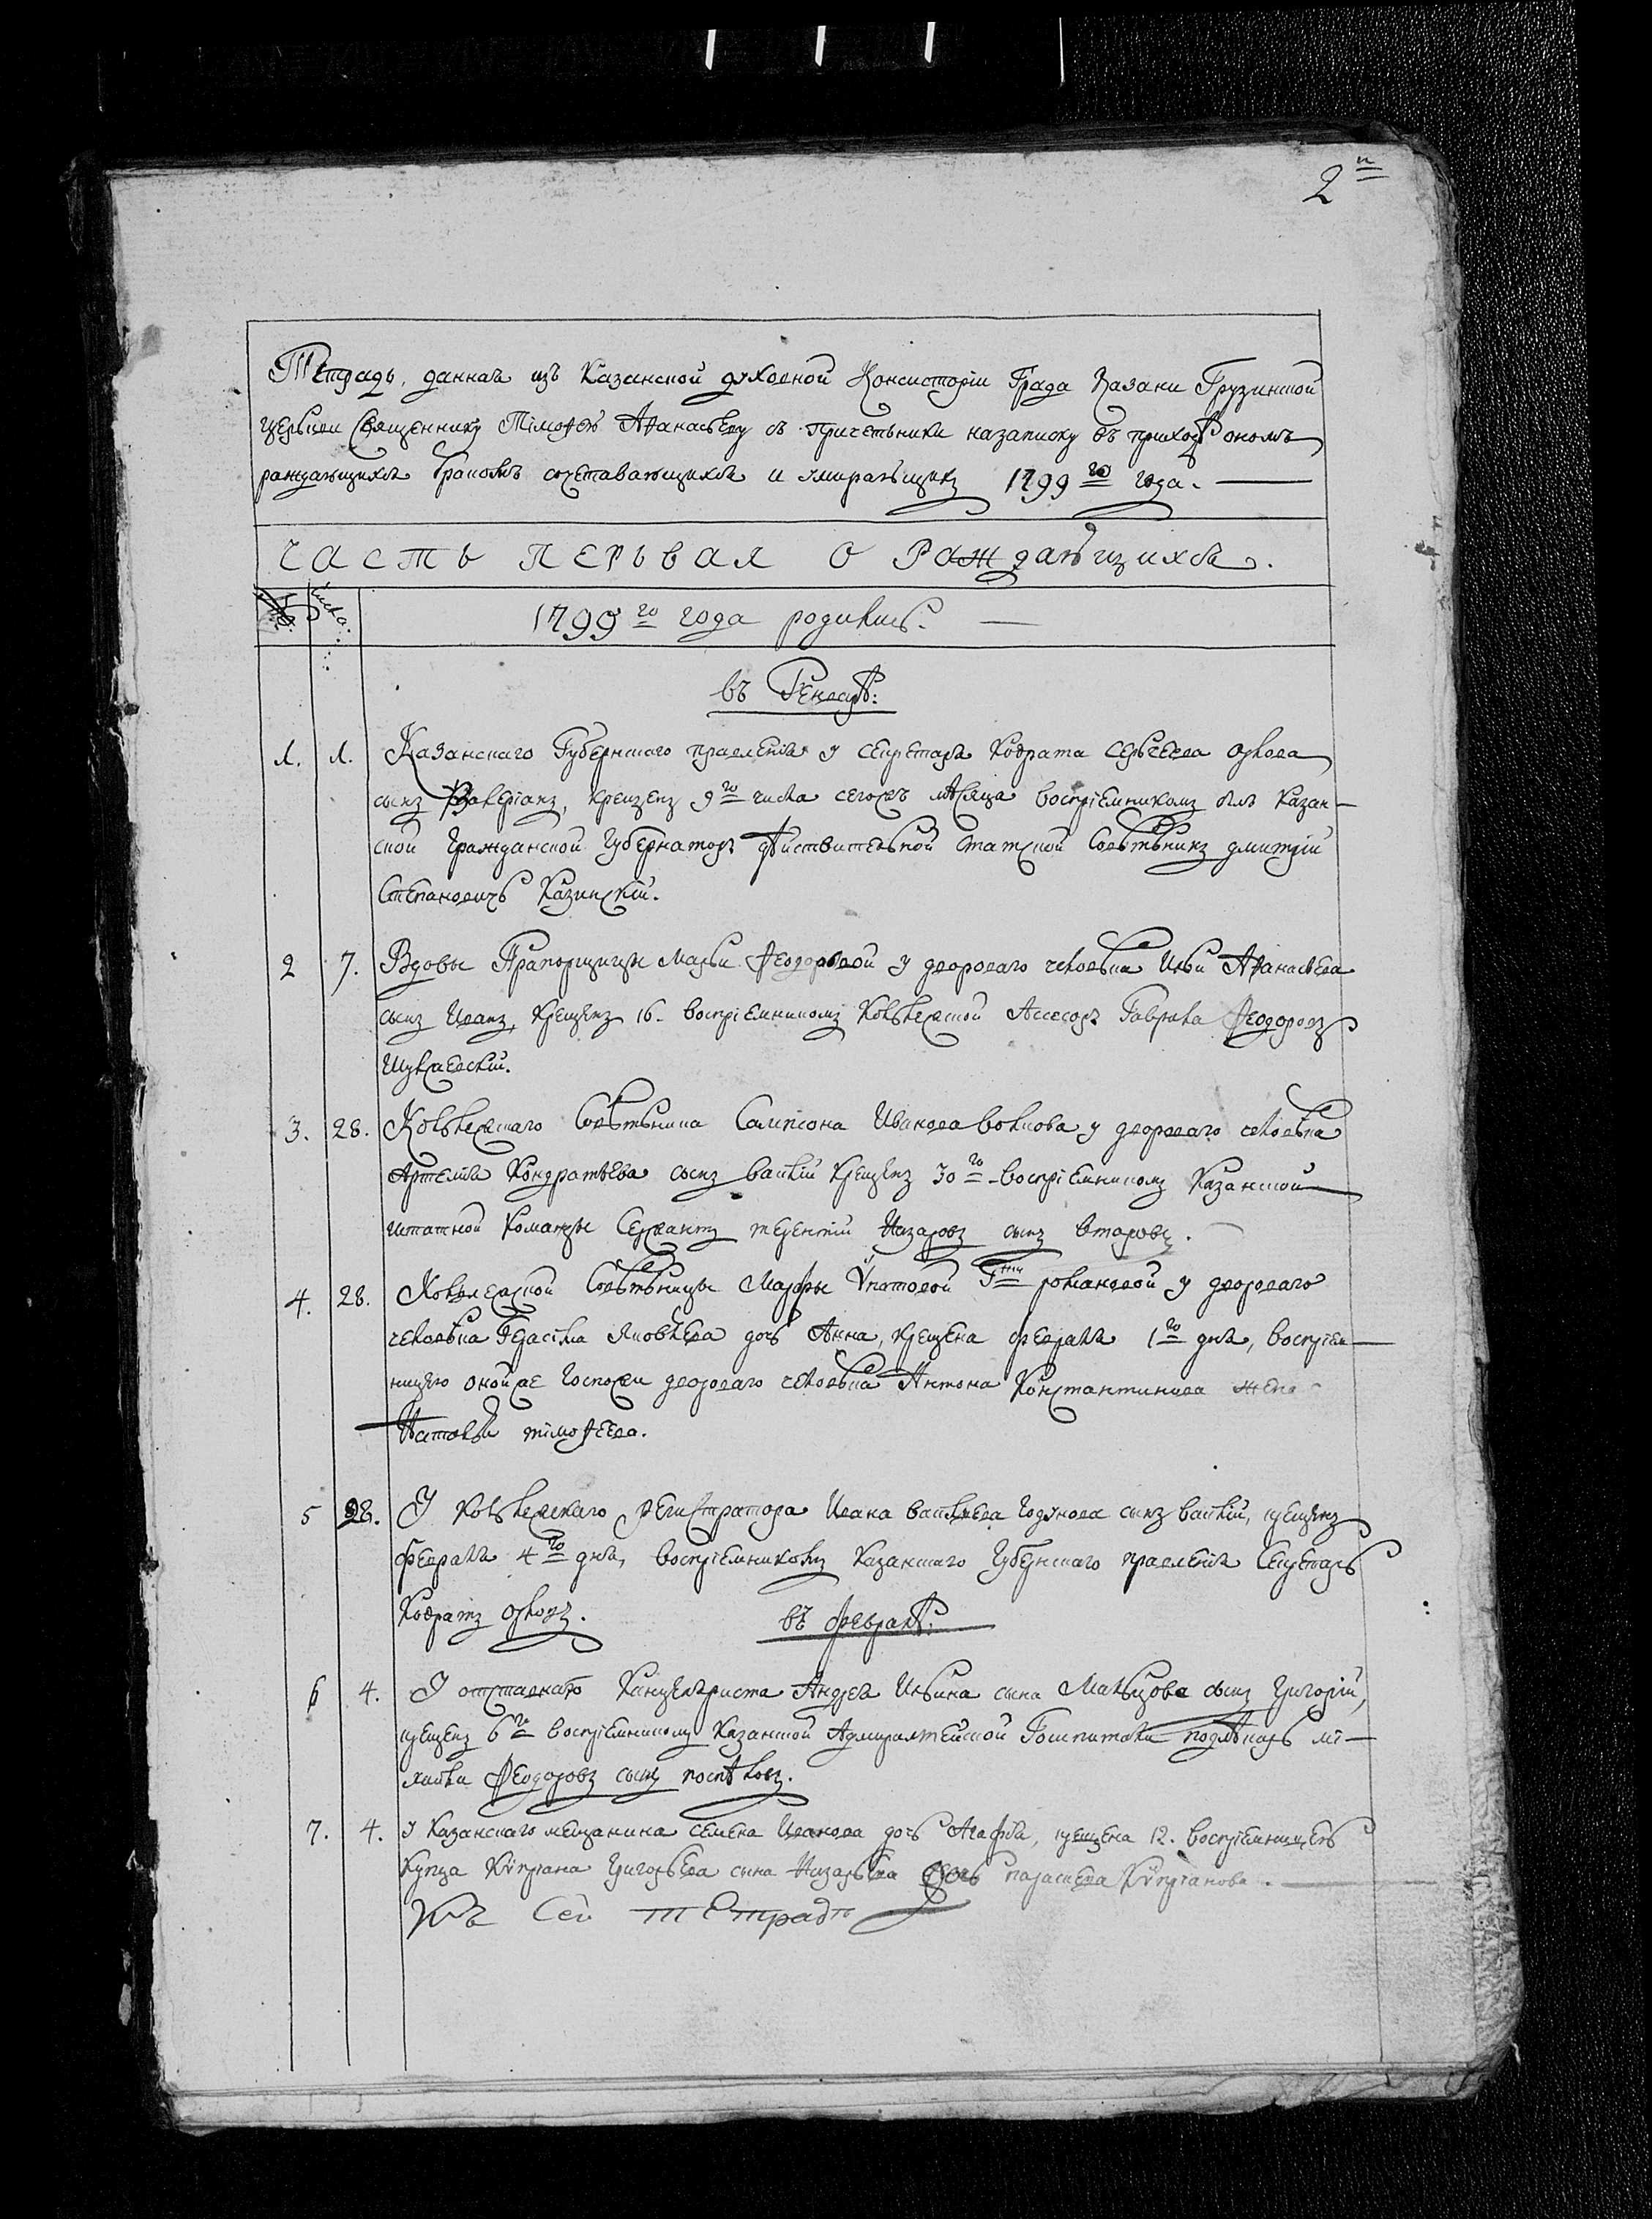 2й
Тетрадь, данная изъ Казанской духовной Консисторіи Града Казани Грузинской
церькви Священнику Тімоѳею Аѳанасьеву съ причетьники назаписку въ приходѣ ономъ
раждающихся бракомъ сочетавающихся и умирающихъ 1799го года.
Часть перьвая о раждающихся.
числа.
1799го года родились.
въ Генварѣ:
1. 1. Казанскаго Губернскаго правленія у секретаря Кодрата Сергеева Орлова
сынъ Валеріанъ, крещенъ 9го числа сегожъ мѣсяца воспріемникомъ былъ Казан-
ской Гражданской Губернаторъ дѣйствительной Статской Совѣтьникъ дмитрій
Степановичь Казинскій.
2 7. Вдовы Прапорщицы Марьи Ѳеодоровой у двороваго человѣка Ильи Аѳанасьева
сынъ Иванъ, крещенъ 16. воспріемникомъ Колѣжской Ассесоръ Гаврила Ѳеодоровъ
3. 28. Колѣжскаго Совѣтьника Сампсона Иванова волкова у двороваго человѣка
Артемія Кондратьева сынъ василій крещенъ 30го воспріемникомъ Казанской
штатной Команды Сержантъ терентій Назаровъ сынъ
4. 28. Колѣжской Совѣтьницы Марфы Ѵпатовой Гжи романовой у двороваго
человѣка Герасіма Яковлева дочь Анна, крещена февраля 1го дня, воспріем-
ницею онойже госпожи двороваго человѣка Антона Константинова жена
Наталья тімоѳеева.
5 28. У Колѣжскаго регистратора Ивана васильева Годунова сынъ василій, крещенъ
февраля 4го дня, воспріемникомъ Казанскаго Губернскаго правленія Секретарь
Кодратъ Орловъ.
въ февралѣ:
6 4. У отставнаго Канцеляриста Андрея Ильина сына Мальцова сынъ Григорій,
крещенъ 6го воспріемникомъ Казанской Адмиралтейской Гошпитали подлѣкарь мі-
хайла Ѳеодоровъ сынъ поспѣловъ.
7. 4. У Казанскаго мещанина Семена Иванова дочь Агафія, крещена 12. воспріемницею
Купца Кѵпріана Григорьева сына Назарьева дочь параскева Кѵпріанова.
Къ Сей тетрадѣ